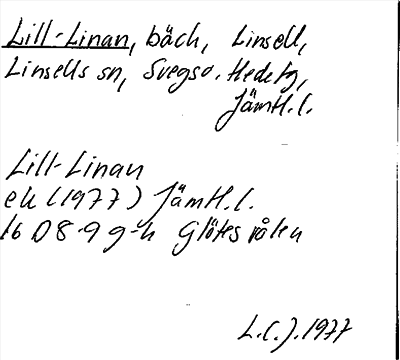 Lill-Linan, bäck, Linsell,
Linsells sn, Svegs o. Hede tg,
Jämtl.l.
Lill-Linan
ek (1977) Jämtl.l.
16 D 8-9 g-h Glötesvålen
L.C.J. 1977